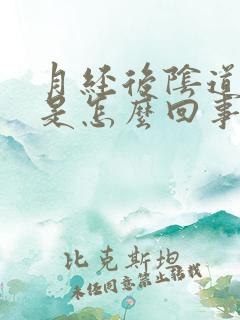 月經後陰道
是怎麼回事
比克斯坦
未經同意禁止搭載